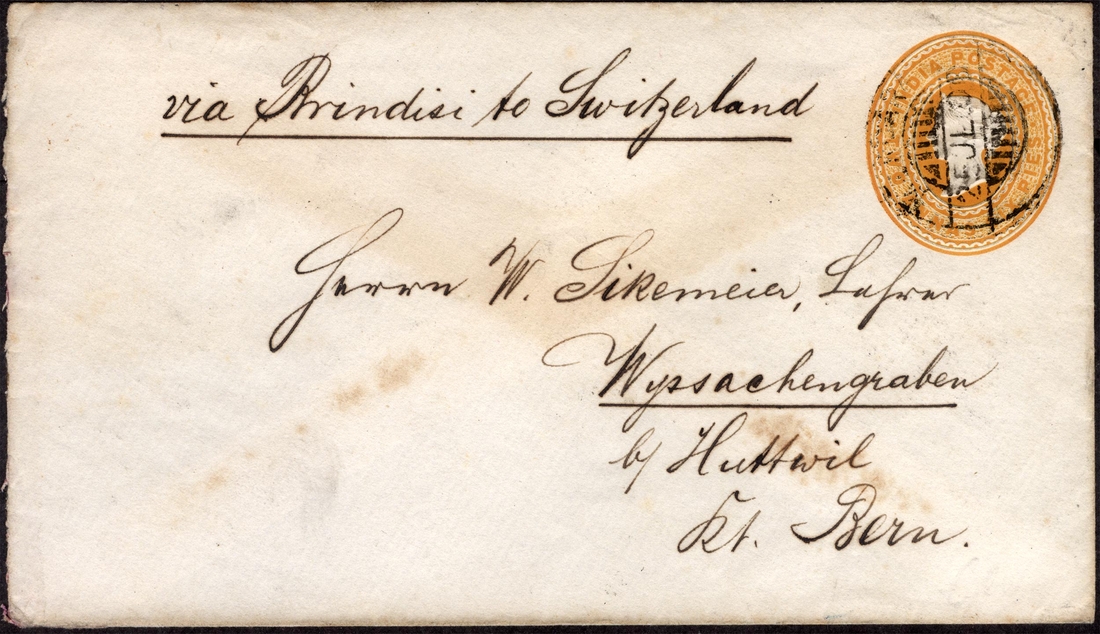 via Brindisi to Switzerland
INDIA POSTAGE
JL
Herrn W. Sikemeier, Lehrer
Wyssachengraben
b/ Huttwil
Kt. Bern.